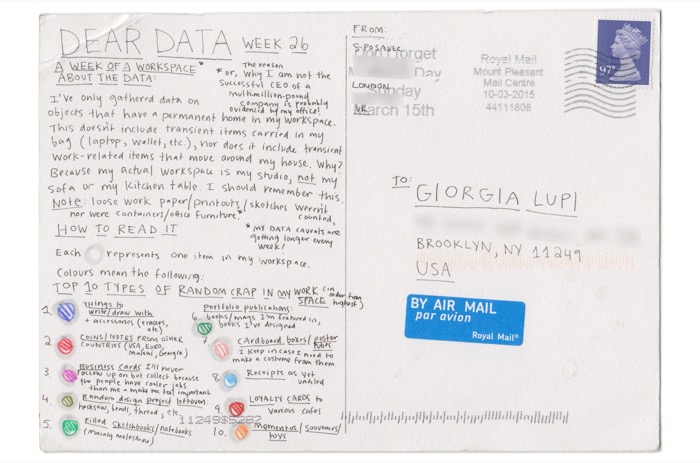 DEAR DATA WEEK 26
A WEEK OF A WORKSPACE *
ABOUT THE DATA:
* The reason
or, Why I am not the
successful CEO of a
multimillion-pound
company is probably
evidenced by my office!
I've only gathered data on
objects that have a permanent home in my workspace.
This doesn't include transient items carried in my
bag (laptop, wallet, etc.), nor does it include transient
work-related items that move around my house. Why?
Because my actual workspace is my studio, not my
sofa or my kitchen table. I should remember this.
Note: loose work paper/printouts/sketches weren't counted,
nor were containers/office furniture.*
* MY DATA CAVEATS are
getting longer every
week!
HOW TO READ IT
Each represents one item in my workspace.
Colours mean the following:
TOP 10 TYPES OF RANDOM CRAP IN MY WORK SPACE (in order than highest)
1. Things to
write/draw with
+ accessories (erasers, etc)
2. COINS/NOTES FROM OTHER
COUNTRIES (USA, Euro,
Georgia)
3. Business Cards I'll never
follow up on but collect because
the people have cooler jobs
than me + make me feel important
4. Random design project leftovers:
hacksaw, beads, thread, etc.
5. Filled sketchbooks/notebooks
(mainly moleskine)
portfolio publications:
6. books/mags I'm featured in,
books I've designed
7. Cardboard boxes/poster tubes
I keep in case I need to
make a costume from them
8. Receipts as yet
unfiled
9. LOYALTY CARDS to
various cafes
10. Momentos/souvenirs/
toys
FROM:
S. POSAVEC
LONDON
UK
Don't forget
Day
Sunday
March 15th
Royal Mail
Mount Pleasant
Mail Centre
10-03-2015
44111808
97P
TO:
GIORGIA LUPI
BROOKLYN, NY 11249
USA
BY AIR MAIL
par avion
Royal Mail®